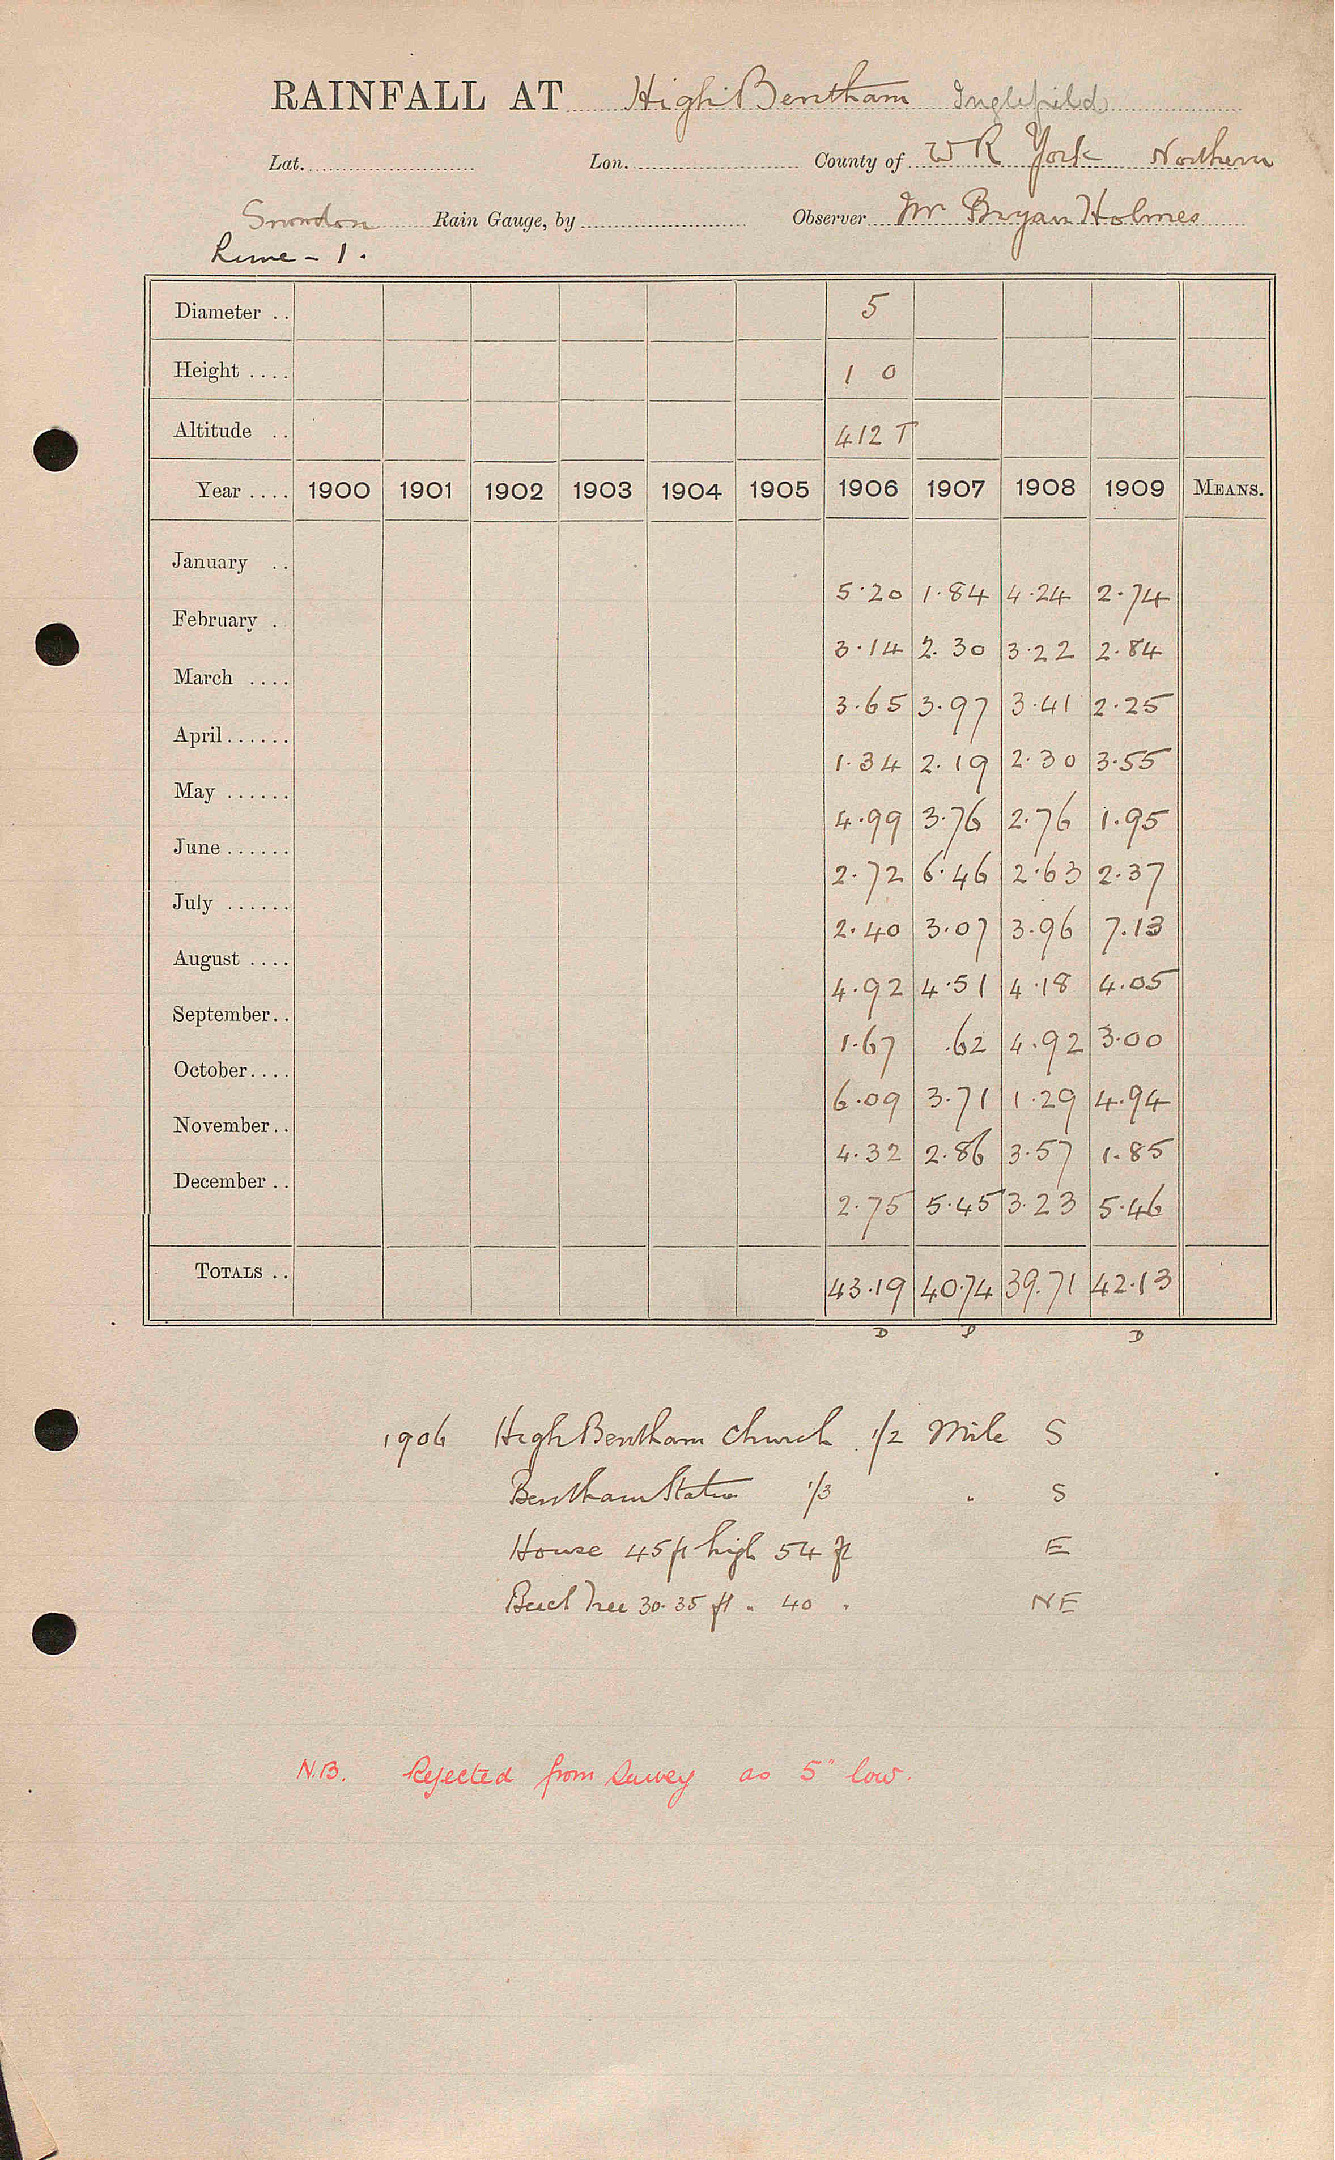 RAINFALL AT High Bentham Inglefield
Lat. Lon. County of W R York Northern
Snowdon Rain Gauge, by Observer Mr Bryan Holmes
Lune - 1.
Diameter .. 5
Height .... 1 0
Altitude .. 412 T
Year .... 1900 1901 1902 1903 1904 1905 1906 1907 1908 1909 MEANS.
January .. 5.20 1.84 4.24 2.74
February . 3.14 2.30 3.22 2.84
March .... 3.65 3.97 3.41 2.25
April...... 1.34 2.19 2.30 3.55
May ...... 4.99 3.76 2.76 1.95
June ...... 2.72 6.46 2.63 2.37
July ...... 2.40 3.07 3.96 7.13
August .... 4.92 4.51 4.18 4.05
September.. 1.67 .62 4.92 3.00
October.... 6.09 3.71 1.29 4.94
November.. 4.32 2.86 3.57 1.85
December .. 2.75 5.45 3.23 5.46
TOTALS .. 43.19 40.74 39.71 42.13
D D D
1906 High Bentham Church 1/2 Mile S
Bentham Station 1/3 " S
House 45 ft high 54 ft E
Beech Tree 30-35 ft " 40 " NE
N.B. Rejected from Survey as 5" low.